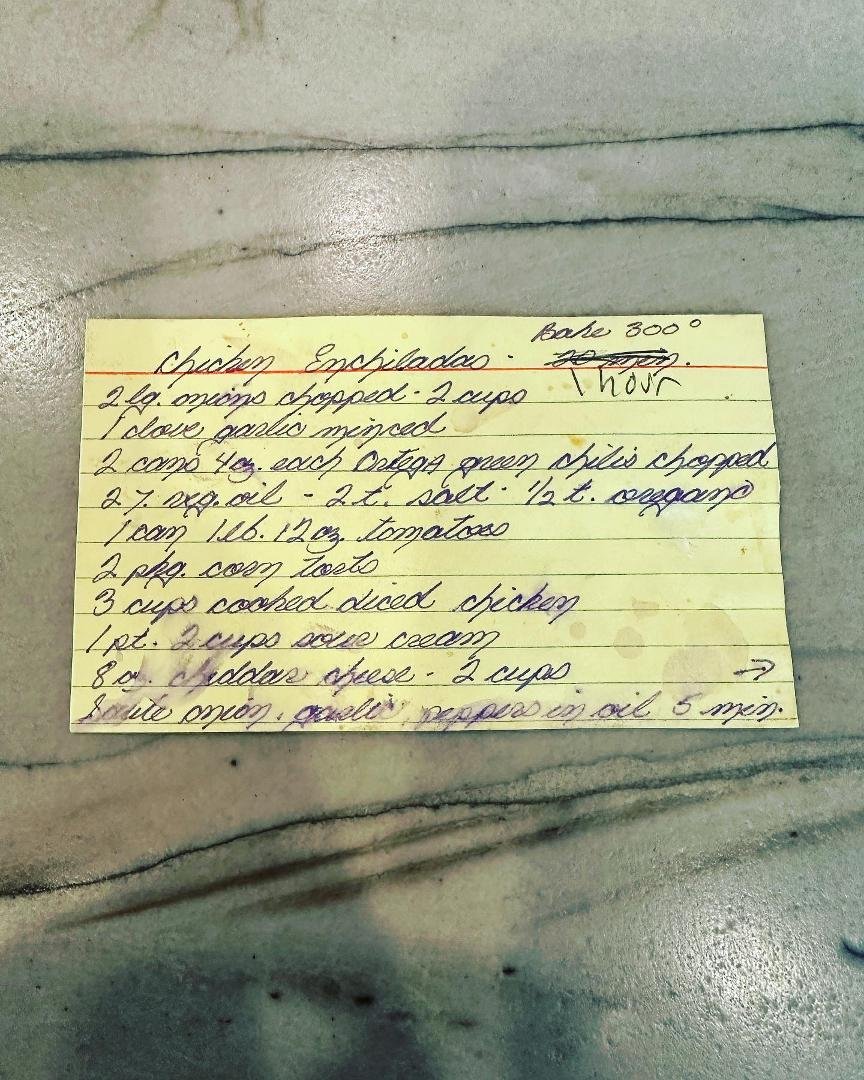 Bake 300°
Chicken Enchiladas - 20 min.
1 hour
2 lg. onions chopped - 2 cups
1 clove garlic minced
2 cans 4 oz. each Ortega green chilis chopped
2 T. veg. oil - 2 t. salt - 1/2 t. oregano
1 can 1 lb. 12 oz. tomatoes
2 pkg. corn torts
3 cups cooked diced chicken
1 pt. 2 cups sour cream
8 oz. cheddar cheese - 2 cups →
Saute onion, garlic, peppers in oil 5 min.